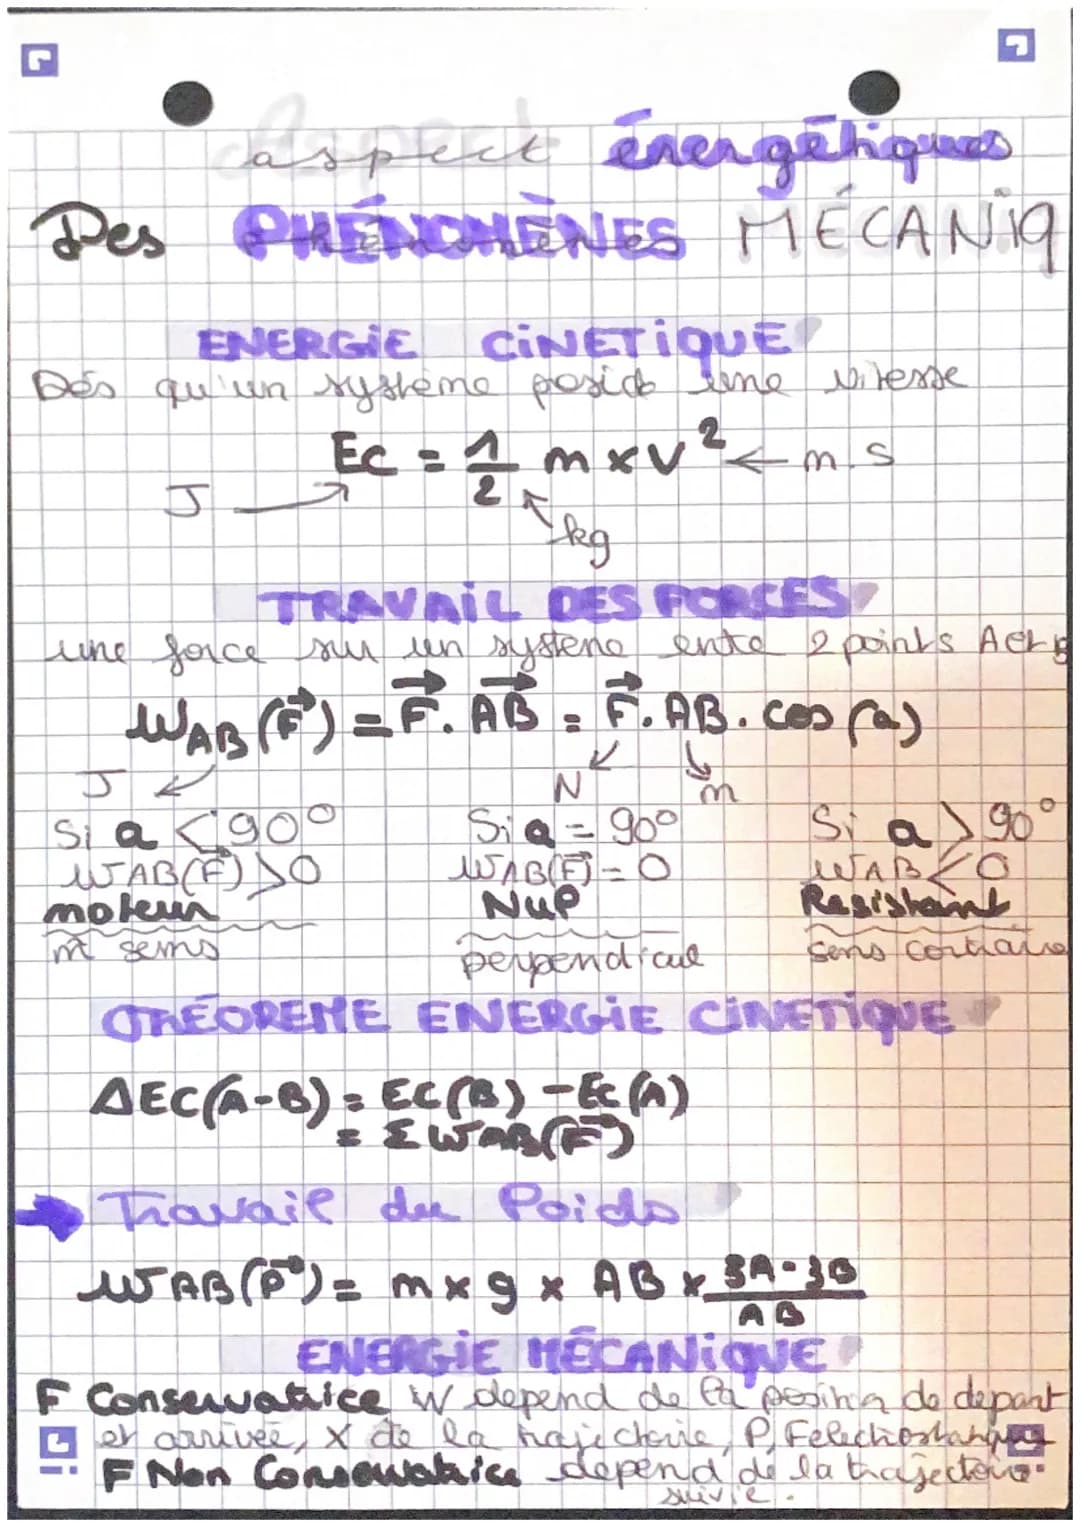 aspect énergétiques
Des PHÉNOMÈNES MÉCANIQ
ENERGIE CINETIQUE
Dés qu'un système posède une vitesse
Ec = 1/2 m x v² ← m.s
J → kg
TRAVAIL DES FORCES
une force sur un système ente 2 points A et B
WAB (F⃗) = F⃗. AB⃗ = F⃗. AB. cos (a)
J N m
Si a < 90° Si a = 90° Si a > 90°
WAB(F⃗) > 0 WAB(F⃗) = 0 WAB < 0
moteur Nul Resistant
m̂ sens perpendicul sens contraire
THÉOREME ENERGIE CINETIQUE
ΔEC(A-B) = EC(B) - Ec(A)
= Σ WAB(F⃗)
→ Travail du Poids
WAB(P⃗) = m x g x AB x (zA - zB)/AB
ENERGIE MÉCANIQUE
F Conservatrice W depend de la position de depart
et arrivée, X de la trajectoire, P, Felectrostatique
F Non Conservatrice depend de la trajectoire
suivie.